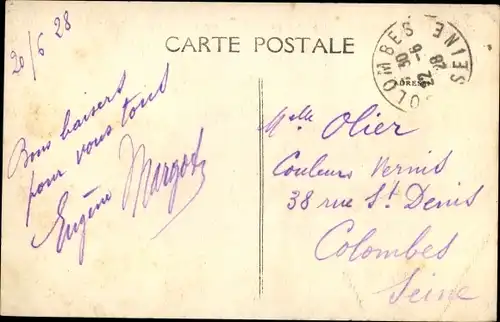 CARTE POSTALE
20/6 28
Bons baisers
pour vous tous
Eugène Margot
COLOMBES
SEINE
ADRESSE
Melle Olier
Couleurs Vernis
38 rue St Denis
Colombes
Seine